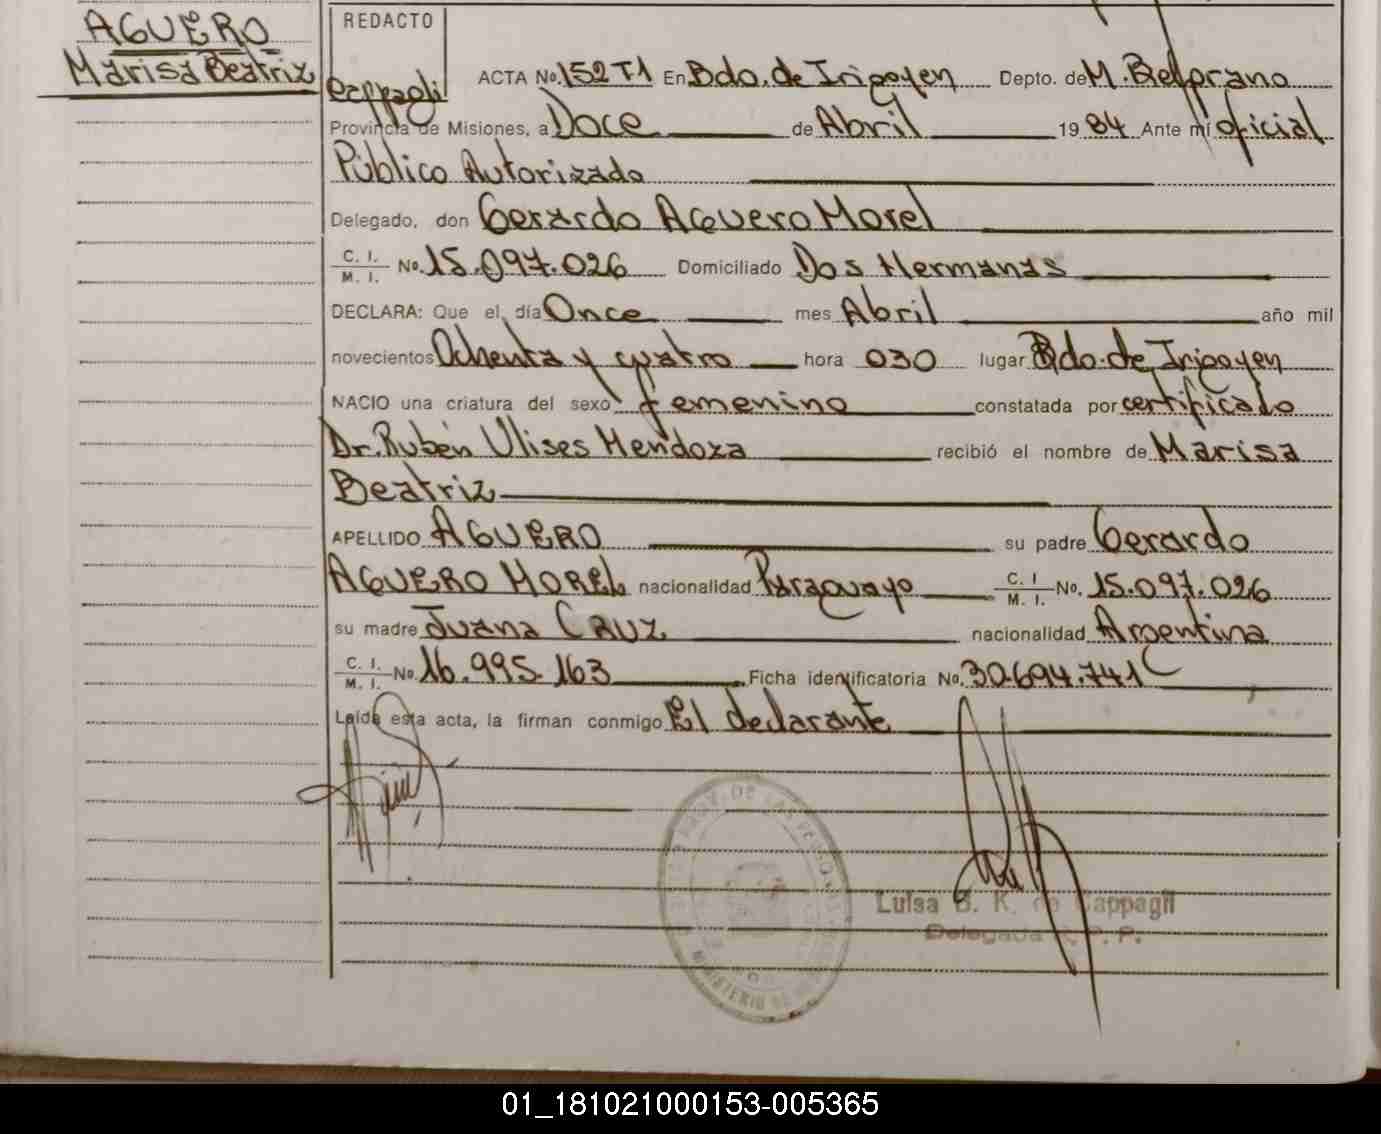 AGUERO
Marisa Beatriz
REDACTO
Cappagli
ACTA No. 152 T1 En Bdo. de Irigoyen Depto. de M. Belgrano
Provincia de Misiones, a Doce de Abril 19 84 Ante mi oficial
Público Autorizado
Delegado, don Gerardo Aguero Morel
C. I.
M. I. No. 15.097.026 Domiciliado Dos Hermanas
DECLARA: Que el día Once mes Abril año mil
novecientos Ochenta y cuatro hora 030 lugar Bdo. de Irigoyen
NACIO una criatura del sexo femenino constatada por certificado
Dr. Rubén Ulises Mendoza recibió el nombre de Marisa
Beatriz
APELLIDO AGUERO su padre Gerardo
AGUERO MOREL nacionalidad Paraguayo C. I
M. I. No. 15.097.026
su madre Juana CRUZ nacionalidad Argentina
C. I.
M. I. No. 16.995.163 Ficha identificatoria No. 30.694.741
Leída esta acta, la firman conmigo El declarante
Luisa B. K. de Cappagli
Delegada R. P. P.
01_181021000153-005365